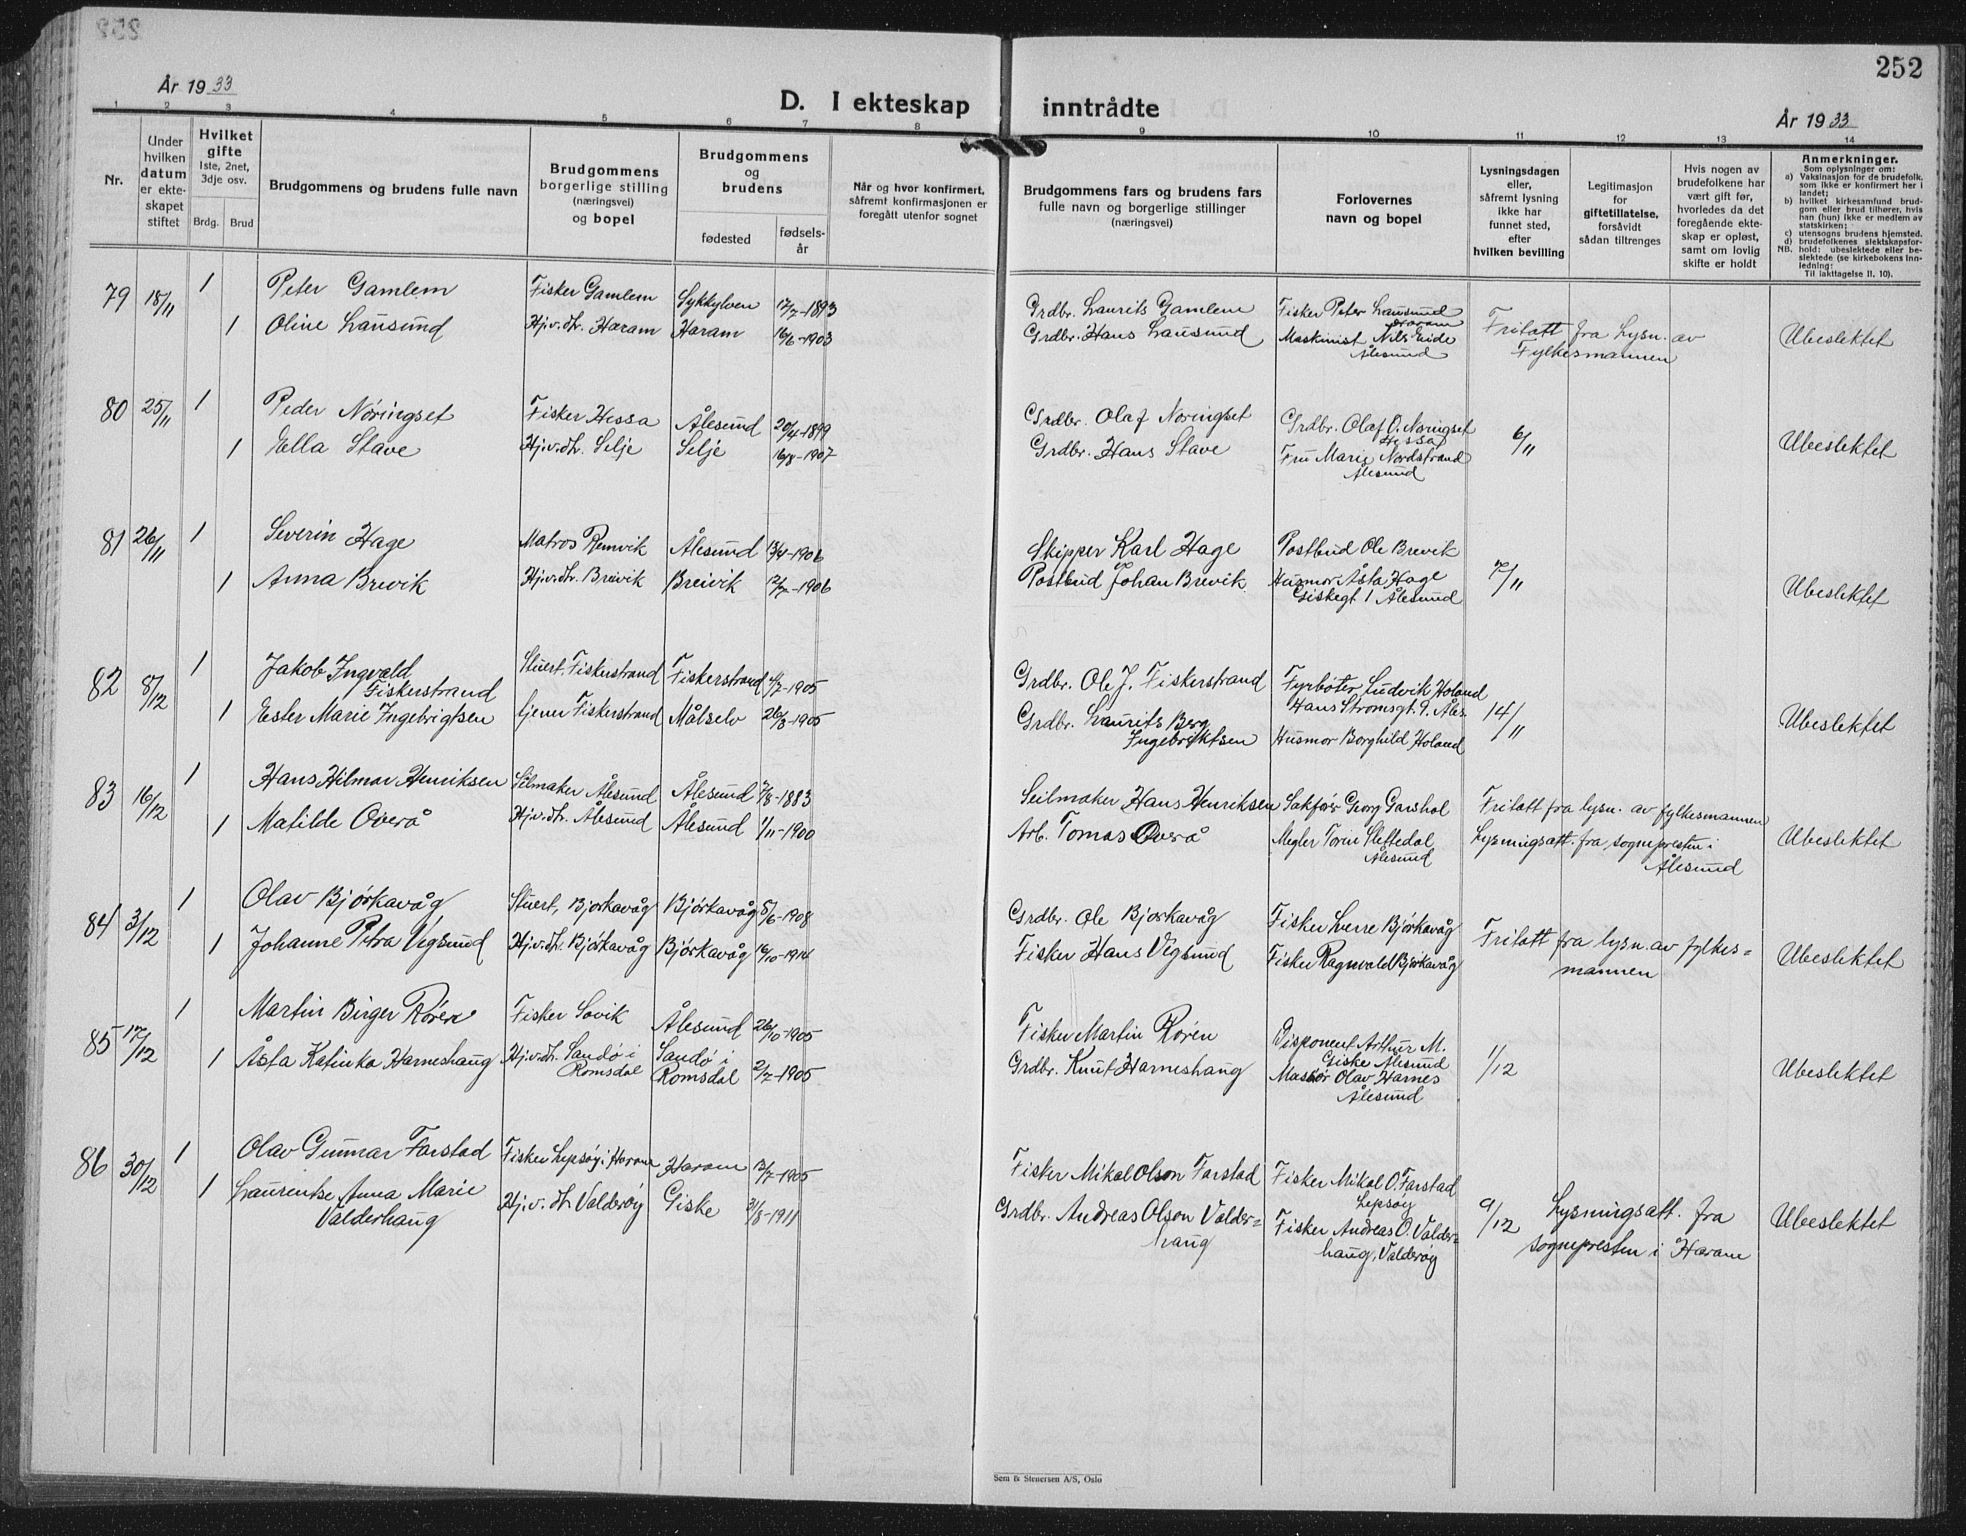 252
År 1933
D. I ekteskap inntrådte
År 1933
1 2 3 4 5 6 7 8 9 10 11 12 13 14
Nr.
Under hvilken datum er ekteskapet stiftet
Hvilket gifte
1ste, 2net, 3dje osv.
Brdg. Brud
Brudgommens og brudens fulle navn
Brudgommens borgerlige stilling (næringsvei) og bopel
Brudgommens og brudens
fødested
fødselsår
Når og hvor konfirmert, såfremt konfirmasjonen er foregått utenfor sognet
Brudgommens fars og brudens fars fulle navn og borgerlige stillinger (næringsvei)
Forlovernes navn og bopel
Lysningsdagen eller, såfremt lysning ikke har funnet sted, efter hvilken bevilling
Legitimasjon for giftetillatelse, forsåvidt sådan tiltrenges
Hvis nogen av brudefolkene har vært gift før, hvorledes da det foregående ekteskap er opløst, samt om lovlig skifte er holdt
Anmerkninger.
Som oplysninger om:
a) Vaksinasjon for de brudefolk, som ikke er konfirmert her i landet;
b) hvilket kirkesamfund brudgom eller brud tilhører, hvis han (hun) ikke er medlem av statskirken;
c) utensogns brudens hjemsted.
d) brudefolkenes slektskapsforhold: ubeslektede eller beslektede (se kirkebokens innledning:
NB.
Til iakttagelse II. 10).
79 18/11 1 Peter Gamlem Fisker Gamlem Sykkylven 17/7-1893 Grdbr. Laurits Gamlem Fisker Peter Lausund Haram
1 Oline Lausund Hj.v.dtr. Haram Haram 16/6-1903 Grdbr. Hans Lausund Maskinist Nils Eide Ålesund
Fritatt fra Lysn. av Fylkesmannen Ubeslektet
80 25/11 1 Peder Nøringset Fisker Hessa Ålesund 20/4-1899 Grdbr. Olaf Noringset Grdbr. Olaf O. Noringset Hessa
1 Ella Stave Hj.v.dtr. Selje Selje 16/8-1907 Grdbr. Hans Stave Fru Marie Nordstrand Ålesund
6/11 Ubeslektet
81 26/11 1 Severin Hage Matros Ålesund 13/4-1906 Skipper Karl Hage Postbud Ole Brevik
1 Anna Brevik Hj.v.dtr. Breivik Breivik 12/7-1906 Postbud Johan Brevik Husmor Åsta Hage Giskegt 1 Ålesund
7/11 Ubeslektet
82 8/12 1 Jakob Ingvald Fiskerstrand Stuert, Fiskerstrand Fiskerstrand 4/7-1905 Grdbr. Ole J. Fiskerstrand Fyrbøter Ludvik Holand Hans Strømsgt. 9. Åles.
1 Ester Marie Ingebrigtsen tjener Fiskerstrand Målselv 26/8-1905 Grdbr. Laurits Berg Ingebriktsen Husmor Borghild Holand
14/11 Ubeslektet
83 16/12 1 Hans Hilmar Henriksen Seilmaker Ålesund Ålesund 7/8-1883 Seilmaker Hans Henriksen Sakfører Georg Garshol
1 Matilde Overå Hj.v.dtr. Ålesund Ålesund 1/11-1900 Arb. Tomas Overå Megler Slettedal Ålesund
Fritatt fra lysn. av fylkesmannen
Lysningsatt. fra sognepresten i Ålesund Ubeslektet
84 3/12 1 Olav Bjørkavåg Stuert, Bjorkavåg Bjørkavåg 8/6-1908 Grdbr. Ole Bjorkavåg Fisker Sverre Bjørkavåg
1 Johanne Petra Vigsund Hj.v.dtr. Bjørkavåg Bjørkavåg 16/10-1914 Fisker Hans Vigsund Fisker Ragnvald Bjørkavåg
Fritatt fra lysn. av fylkesmannen Ubeslektet
85 17/12 1 Martin Birger Rören Fisker Søvik Ålesund 26/10-1905 Fisker Martin Roren Disponent Arthur M. Giske Ålesund
1 Åsta Katinka Harneshaug Hj.v.dtr. Sandö i Romsdal Sandö i Romsdal 2/7-1905 Grdbr. Knut Harneshaug Massör Olav Harnes Ålesund
1/12 Ubeslektet
86 30/12 1 Olav Gunnar Farstad Fisker Lepsøy i Haram Haram 13/7-1905 Fisker Mikal Olson Farstad Fisker Mikal O. Farstad Lepsøy
1 Laurentse Anna Marie Valderhaug Hj.v.dtr Valderøy Giske 31/8-1911 Grdbr. Andreas Olson Valder=haug Fisker Andreas O. Valder=haug, Valderøy
9/12 Lysningsatt. fra sognepresten i Haram Ubeslektet
Sem & Stenersen A/S, Oslo